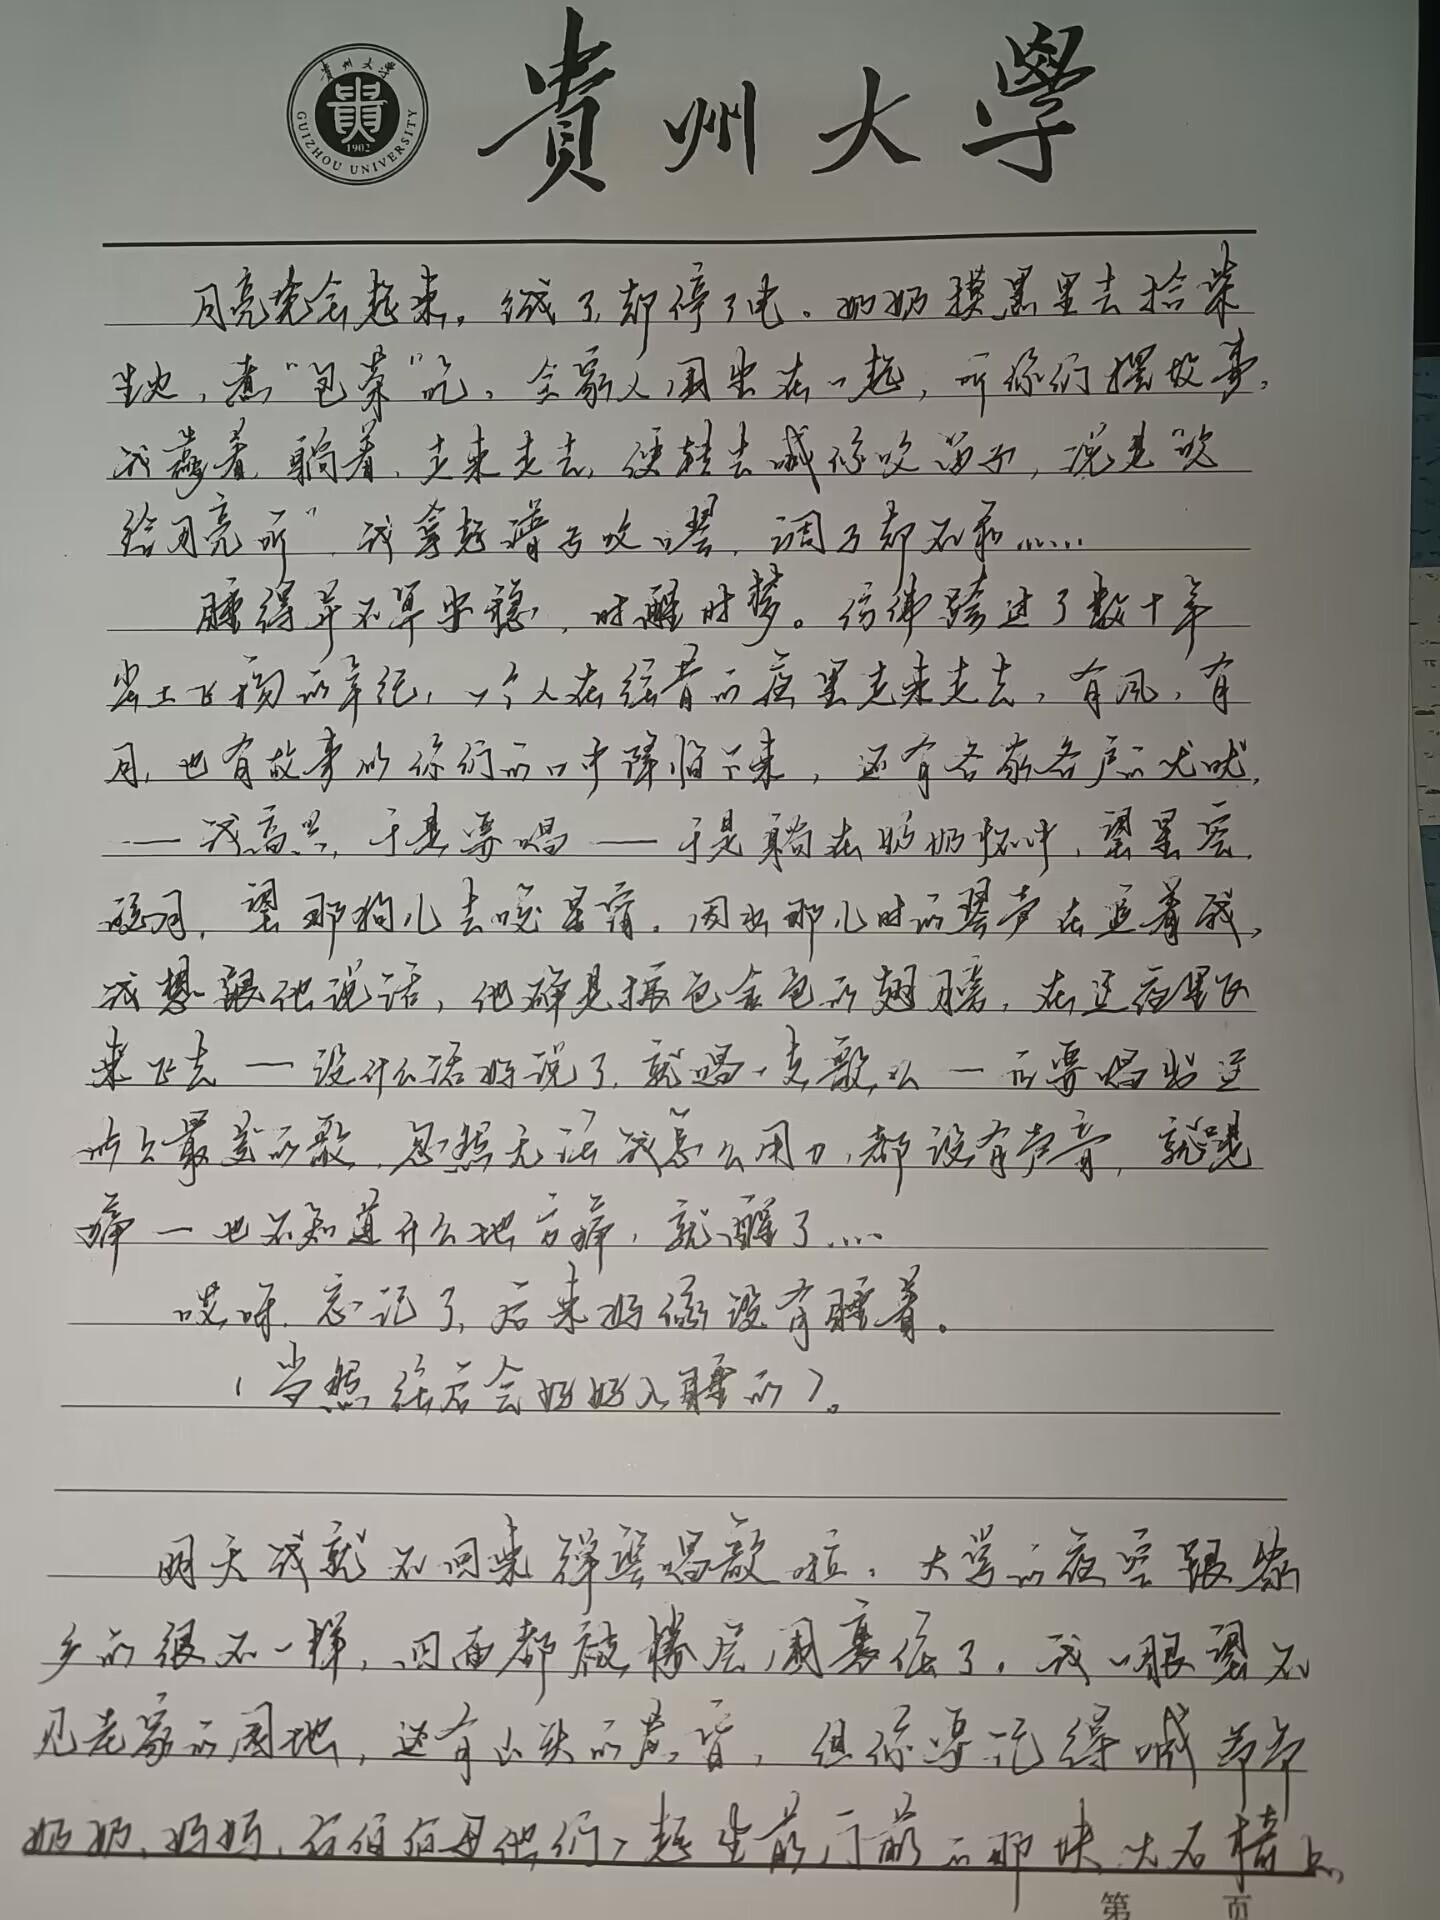 貴州大學
貴州大学
GUIZHOU UNIVERSITY
1902
月亮总会起来。缄了却停了电。奶奶摸黑里去拾柴
生火,煮“包菜”吃。全家人围坐在一起,听你们摆故事,
我蹲着、躺着、走来走去,便转去喊你吹笛子,说是“吹
给月亮听”,我拿起谱子吹口琴,调子却不和……
睡得并不算安稳,时醒时梦。仿佛跨过了数十年
尘土飞扬的年纪,一个人在弦音的夜里走来走去,有风,有
月,也有故事从你们的口中降临下来,还有各家各户的犬吠,
——我高兴,于是要唱——于是躺在奶奶怀中,望星空,
咬月,望那狗儿去咬星宿。因为那儿时的琴声在追着我,
我想跟他说话,他确是振包金色的翅膀,在这夜里飞
来飞去—没什么话好说了,就唱一支歌么—而要唱出这
么最美的歌,忽然无法我怎么用力,都没有声音,就觉
痛—也不知道什么地方痛,就醒了……
哎呀,忘记了,后来好像没有睡着。
(当然往后会好好入睡的)。
明天我就不回来弹琴唱歌啦,大学的夜空跟家
乡的很不一样,四面都被楼层围裹住了,我一眼望不
见老家的园地,还有山头的,但你要记得喊爷爷
奶奶、妈妈、伯伯伯母他们,起坐前门前的那块大石椅上,
第 页